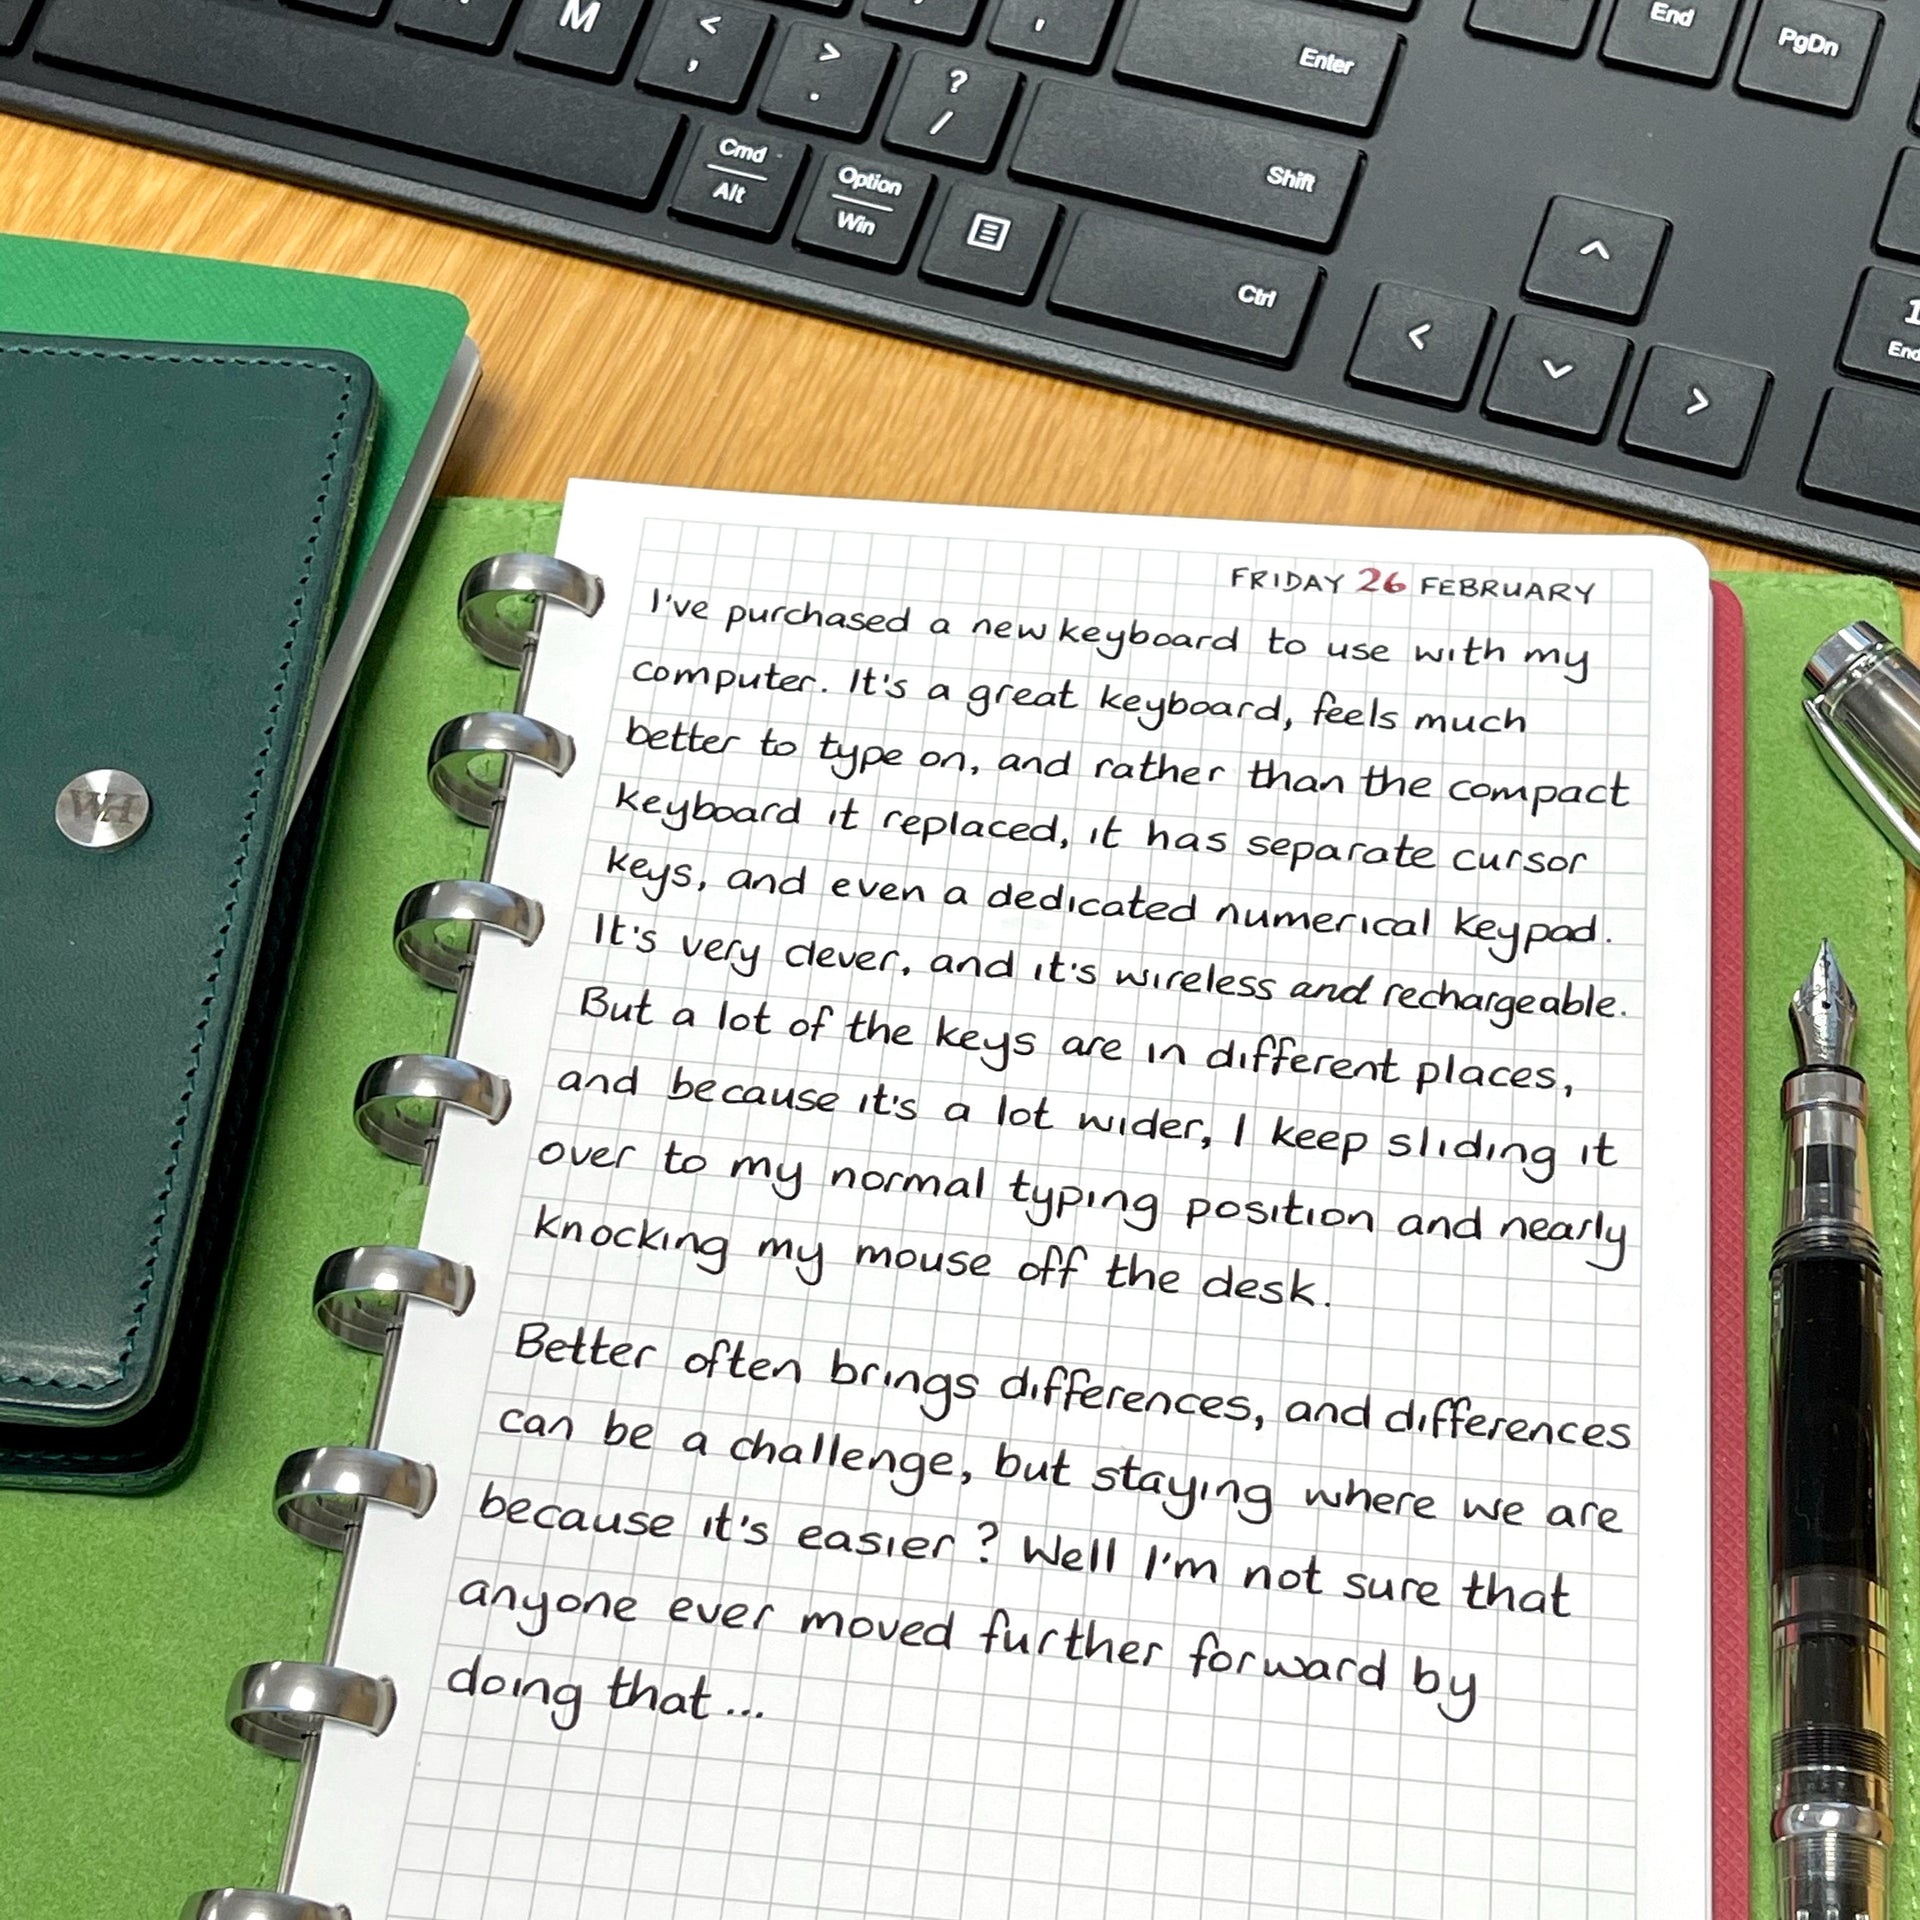 M < ,
> .
? /
,
Enter
End
PgDn
Cmd
Alt
Option
Win
Shift
Ctrl
^
<
v
>
1
End
WH
FRIDAY 26 FEBRUARY
I've purchased a new keyboard to use with my
computer. It's a great keyboard, feels much
better to type on, and rather than the compact
keyboard it replaced, it has separate cursor
keys, and even a dedicated numerical keypad.
It's very clever, and it's wireless and rechargeable.
But a lot of the keys are in different places,
and because it's a lot wider, I keep sliding it
over to my normal typing position and nearly
knocking my mouse off the desk.
Better often brings differences, and differences
can be a challenge, but staying where we are
because it's easier? Well I'm not sure that
anyone ever moved further forward by
doing that...